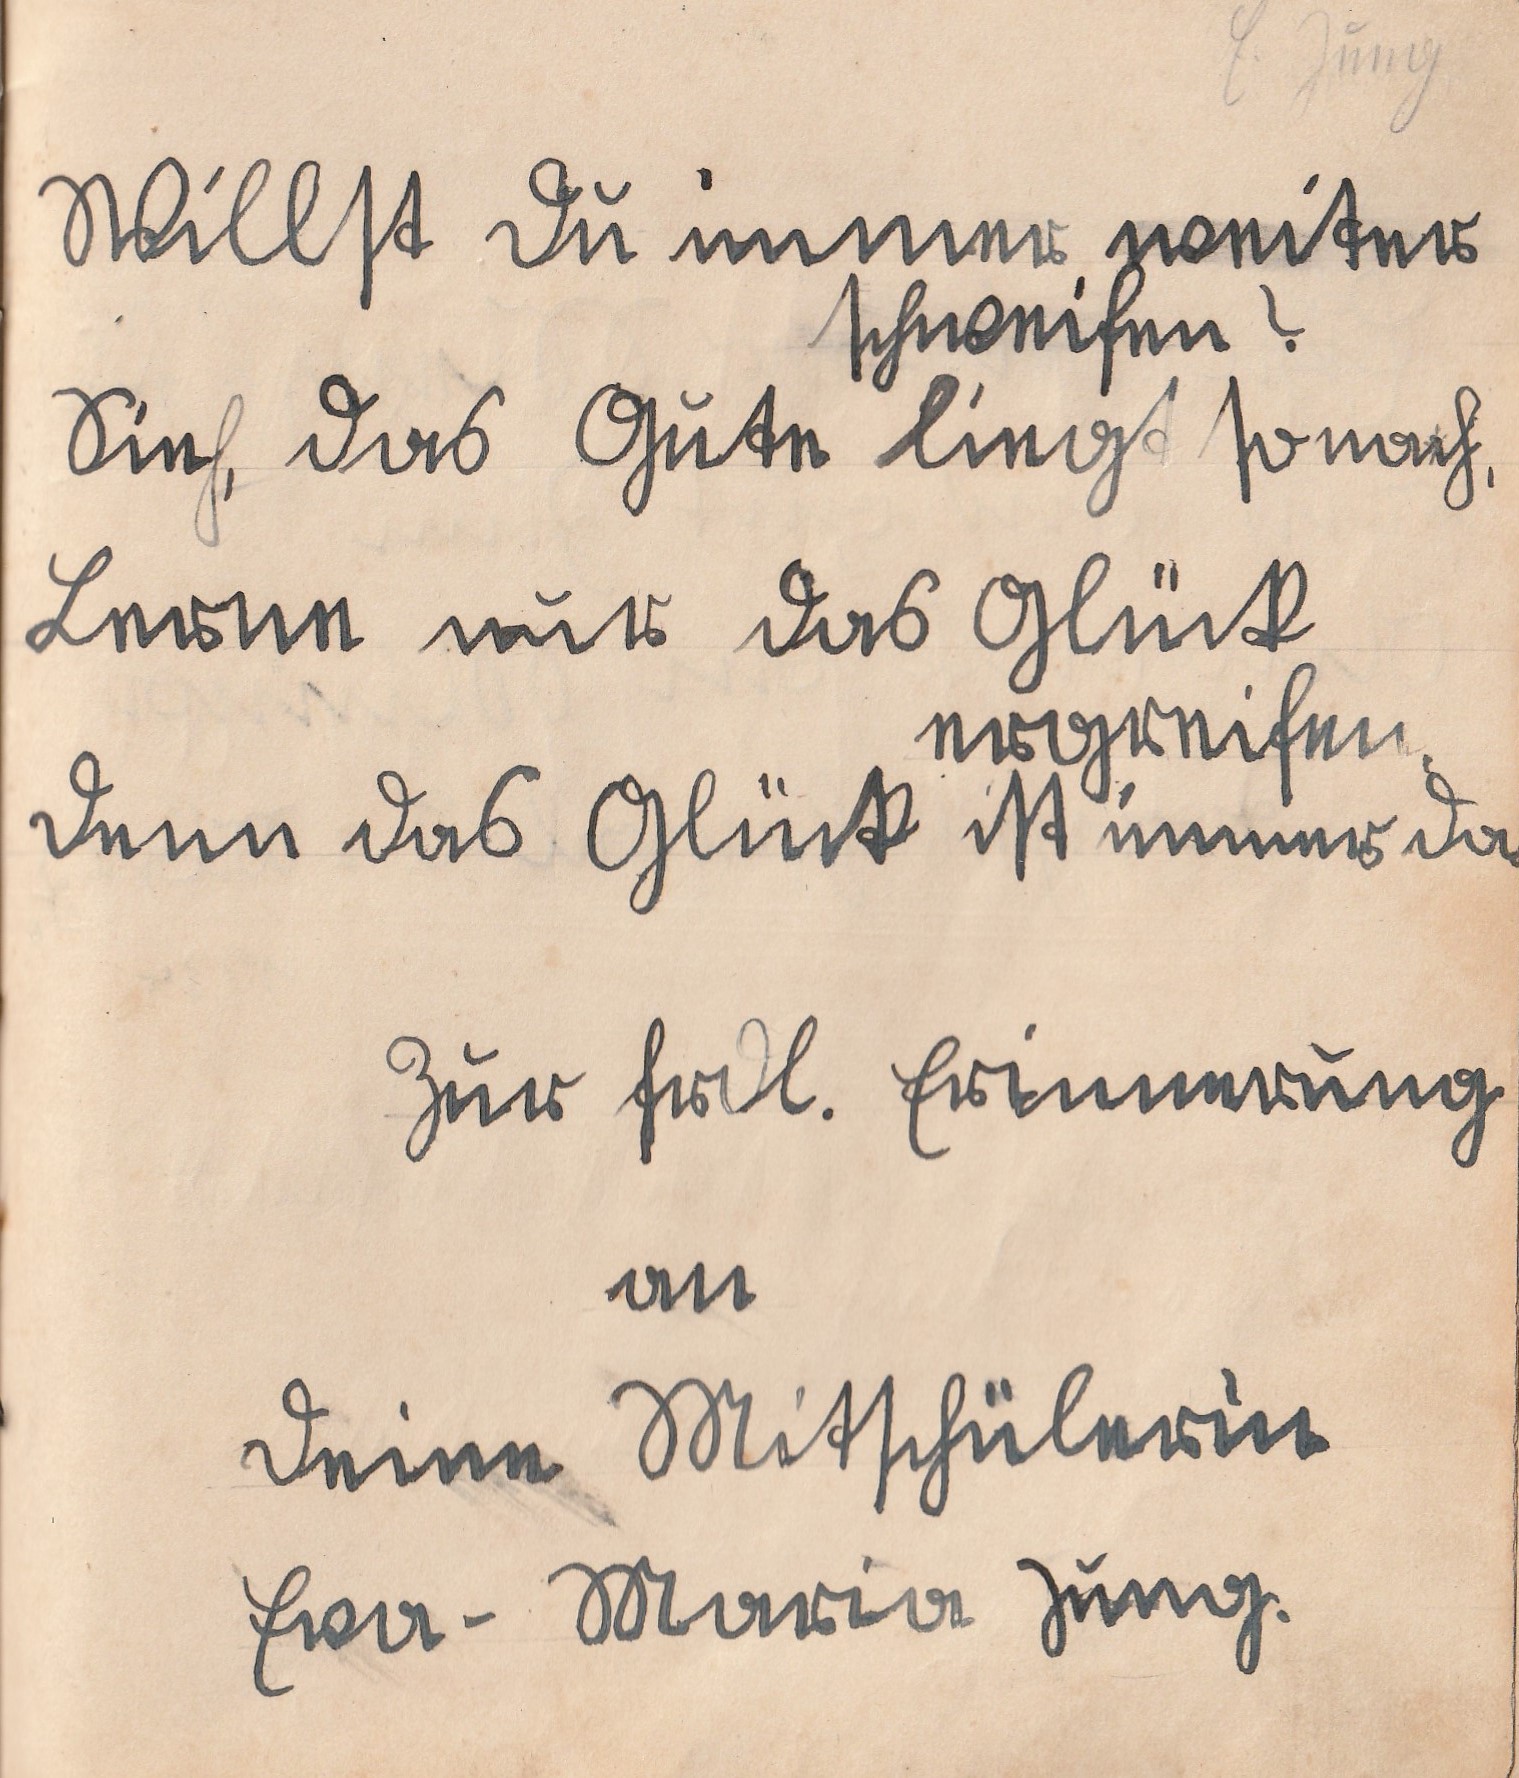 E. Jung
Willst Du immer weiter
schweifen?
Sieh, das Gute liegt so nah,
Lerne nur das Glück
ergreifen,
denn das Glück ist immer da
Zur frdl. Erinnerung
an
Deine Mitschülerin
Eva-Maria Jung.